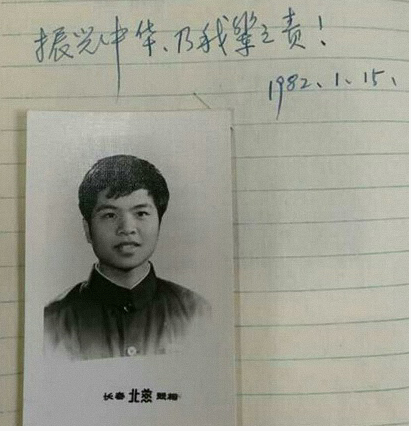 振兴中华、乃我辈之责！
1982.1.15.
长春 照相